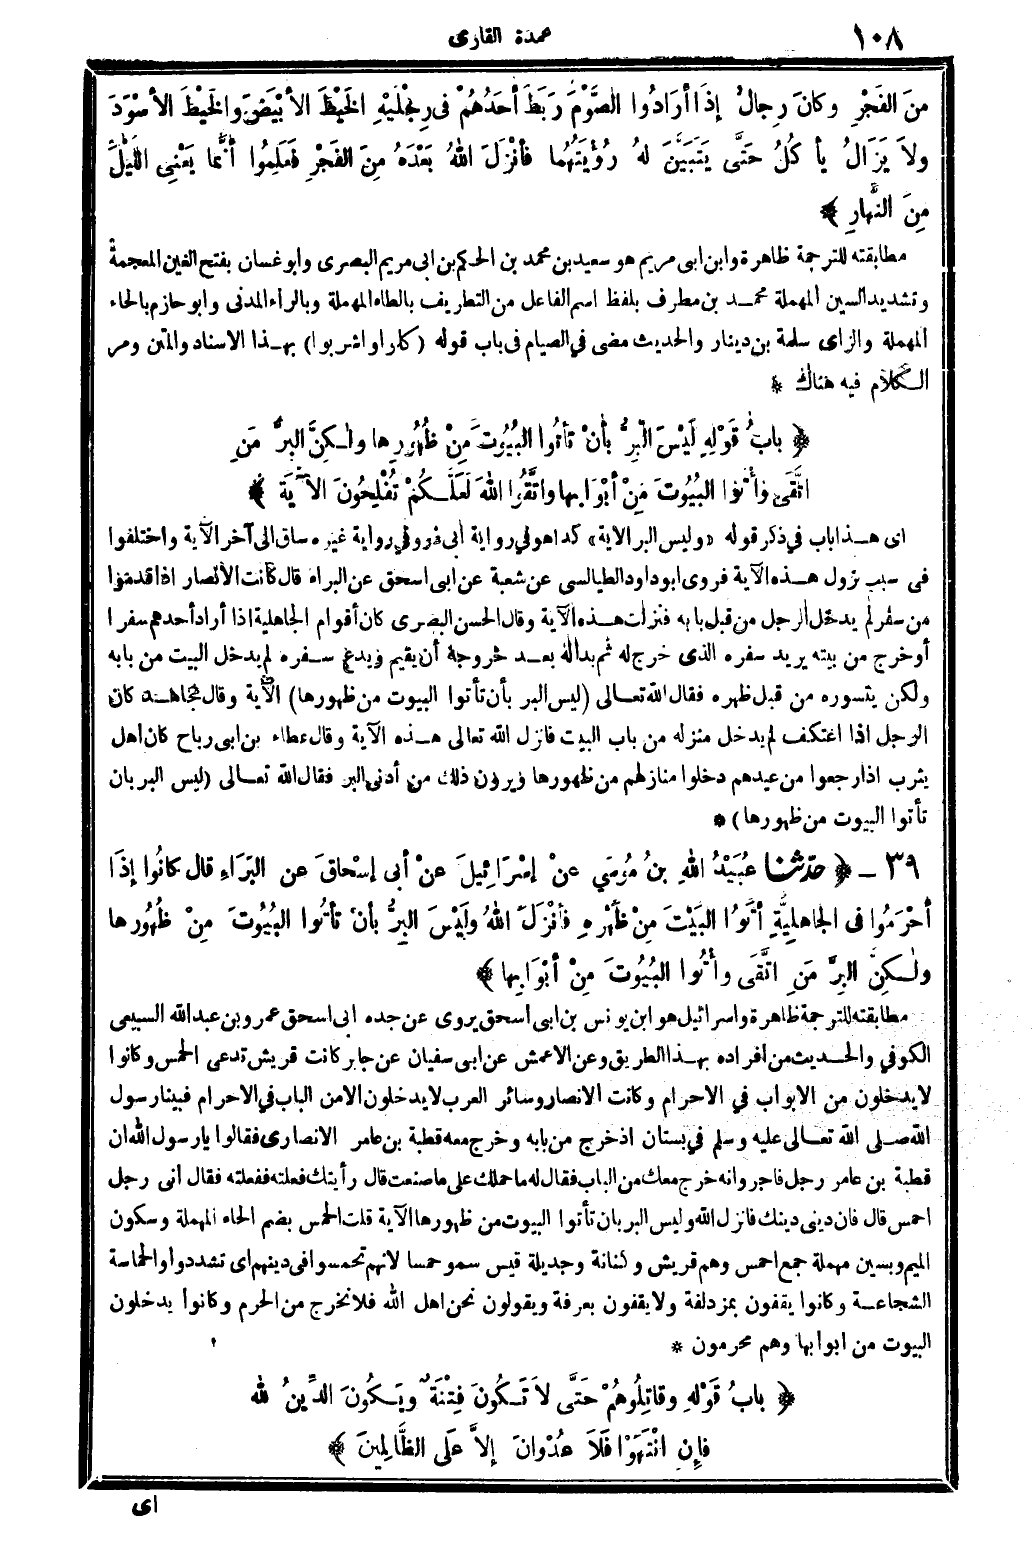 ١٠٨ عمدة القارى
مِنَ الفَجْرِ وكانَ رِجالٌ إذَا أرَادُوا الصَّوْمَ رَبَطَ أحَدُهُمْ فى رِجْلَيْهِ الخَيْطَ الأبْيَضَ والخَيْطَ الأسْوَدَ
ولاَ يَزَالُ يأكُلُ حَتَّى يَتَبَيَّنَ لهُ رُؤْيَتُهُما فأنْزَلَ اللهُ بَعْدَهُ مِنَ الفَجْرِ فَعَلِمُوا أنَّما يَعْنِى اللَّيْلَ
مِنَ النَّهارِ ﴾
مطابقته للترجمة ظاهرة وابن ابى مريم هو سعيد بن محمد بن الحكم بن ابى مريم البصرى وابو غسان بفتح الغين المعجمة
وتشديد السين المهملة محمد بن مطرف بلفظ اسم الفاعل من التطريف بالطاء المهملة وبالراء المدنى وابو حازم بالحاء
المهملة والزاى سلمة بن دينار والحديث مضى في الصيام فى باب قوله (كلوا واشربوا) بهذا الاسناد والمتن ومر
الكلام فيه هناك *
﴿ بابُ قَوْلِهِ لَيْسَ الْبِرُّ بأنْ تأتُوا البُيُوتَ مِنْ ظُهُورِها ولَكِنَّ البِرَّ مَنِ
اتَّقَى وَأْتُوا البُيُوتَ مِنْ أبْوَابِها واتَّقُوا اللهَ لَعَلَّكُمْ تُفْلِحُونَ الآيَةَ ﴾
اى هذا باب في ذكر قوله «وليس البر الاية» كذا هو في رواية أبى ذر وفي رواية غيره ساق الى آخر الآية واختلفوا
فى سبب نزول هذه الآية فروى ابو داود الطيالسى عن شعبة عن ابى اسحق عن البراء قال كانت الأنصار اذا قدموا
من سفر لم يدخل الرجل من قبل بابه فنزلت هذه الآية وقال الحسن البصرى كان أقوام الجاهلية اذا أراد أحدهم سفرا
أو خرج من بيته يريد سفره الذى خرج له ثم بدا له بعد خروجه أن يقيم ويدع سفره لم يدخل البيت من بابه
ولكن يتسوره من قبل ظهره فقال الله تعالى (ليس البر بأن تأتوا البيوت من ظهورها) الآية وقال مجاهد كان
الرجل اذا اعتكف لم يدخل منزله من باب البيت فانزل الله تعالى هذه الآية وقال عطاء بن ابى رباح كان اهل
يثرب اذا رجعوا من عيدهم دخلوا منازلهم من ظهورها ويرون ذلك من أدنى البر فقال الله تعالى (ليس البر بان
تأتوا البيوت من ظهورها) *
٣٩ - ﴿ حدّثنا عُبَيْدُ اللهِ بنُ مُوسَى عنْ إسْرَائِيلَ عنْ أبى إسْحاقَ عنِ البَرَاءِ قال كانُوا إذَا
أحْرَمُوا فى الجاهِلِيَّةِ أتَوُا البَيْتَ مِنْ ظَهْرِهِ فأنْزَلَ اللهُ ولَيْسَ البِرُّ بأنْ تأتُوا البُيُوتَ مِنْ ظُهُورِها
ولكِنَّ البِرَّ مَنِ اتَّقَى وأْتُوا البُيُوتَ مِنْ أبْوَابِها ﴾
مطابقته للترجمة ظاهرة واسرائيل هو ابن يونس بن ابى أسحق يروى عن جده ابى اسحق عمرو بن عبد الله السبيعى
الكوفي والحديث من افراده بهذا الطريق وعن الاعمش عن ابى سفيان عن جابر كانت قريش تدعى الحمس وكانوا
لا يدخلون من الابواب في الاحرام وكانت الانصار وسائر العرب لا يدخلون الا من الباب في الاحرام فبينا رسول
الله صلى الله تعالى عليه وسلم في بستان اذ خرج من بابه وخرج معه قطبة بن عامر الانصارى فقالوا يا رسول الله ان
قطبة بن عامر رجل فاجر وانه خرج معك من الباب فقال له ما حملك على ما صنعت قال رأيتك فعلته ففعلته فقال أنى رجل
احمس قال فان دينى دينك فانزل الله وليس البر بان تأتوا البيوت من ظهورها الآية قلت الحمس بضم الحاء المهملة وسكون
الميم وبسين مهملة جمع احمس وهم قريش وكنانة وجديلة قيس سموا حمسا لانهم تحمسوا فى دينهم اى تشددوا والحماسة
الشجاعة وكانوا يقفون بمزدلفة ولا يقفون بعرفة ويقولون نحن اهل الله فلا نخرج من الحرم وكانوا يدخلون
البيوت من ابوابها وهم محرمون *
﴿ بابُ قَوْلهِ وقاتِلُوهُمْ حَتَّى لاَ تَكُونَ فِتْنَةٌ ويَكُونَ الدِّينُ لله
فإنِ انْتَهَوْا فَلاَ عُدْوَانَ إلاَّ عَلَى الظَّالِمِينَ ﴾
اى